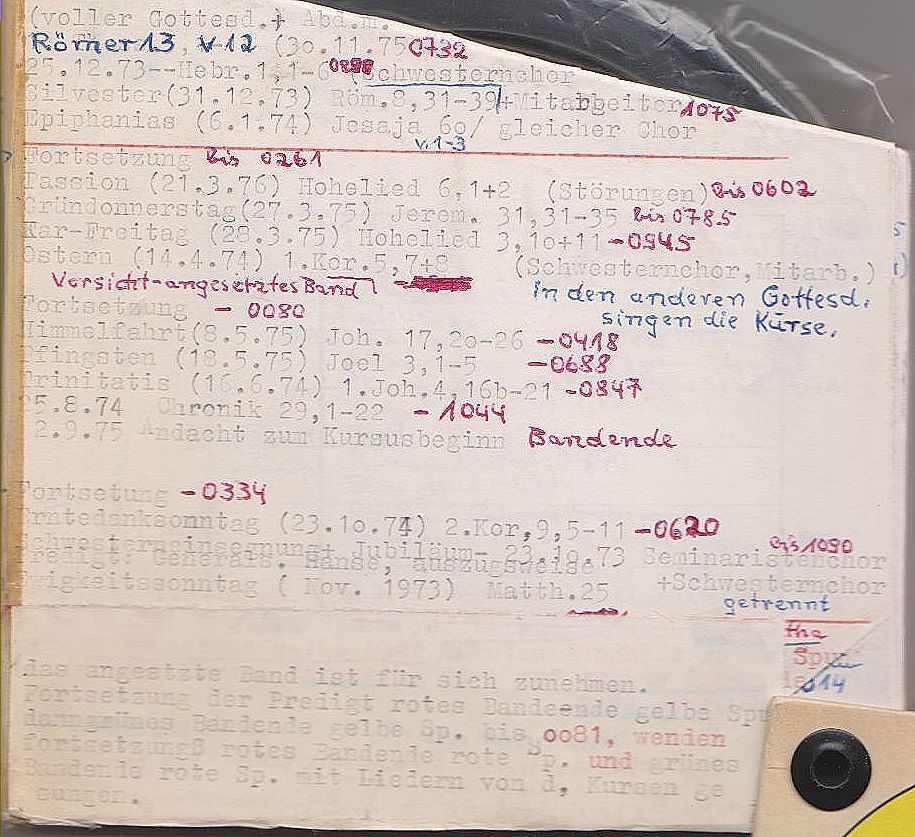 (voller Gottesd.+ Abd.m.
Römer 13, v 12 (30.11.75 0732
25.12.73--Hebr.1,1-6 0898 (Schwesternchor
Silvester(31.12.73) Röm.8,31-39/+Mitarbeiter 1075
Epiphanias (6.1.74) Jesaja 60/ gleicher Chor
v. 1-3
Fortsetzung bis 0261
Passion (21.3.76) Hohelied 6,1+2 (Störungen) bis 0602
Gründonnerstag(27.3.75) Jerem. 31,31-35 bis 0785
Kar-Freitag (28.3.75) Hohelied 3,10+11 -0945
Ostern (14.4.74) 1.Kor.5,7+8 (Schwesternchor,Mitarb.)
Vorsicht-angesetztes Band
in den anderen Gottesd.
Fortsetzung - 0080
singen die Kurse.
Himmelfahrt(8.5.75) Joh. 17,20-26 -0418
Pfingsten (18.5.75) Joel 3,1-5 -0688
Trinitatis (16.6.74) 1.Joh.4,16b-21 -0847
25.8.74 Chronik 29,1-22 - 1044
2.9.75 Andacht zum Kursusbeginn Bandende
Fortsetung -0334
Erntedanksonntag (23.10.74) 2.Kor,9,5-11 -0620
bis 1090
Schwesterneinsegnung+ Jubiläum- 23.10.73 Seminaristenchor
Generals. Hanse, auszugsweise +Schwesternchor
Ewigkeitssonntag ( Nov. 1973) Matth.25
getrennt
das angesetzte Band ist für sich zunehmen.
Fortsetzung der Predigt rotes Bandeende gelbe Spu
danngrünes Bandende gelbe Sp. bis oo81, wenden
fortsetzung rotes Bandende rote Sp. und grünes
Bandende rote Sp. mit Liedern von d, Kursen ge
sungen.